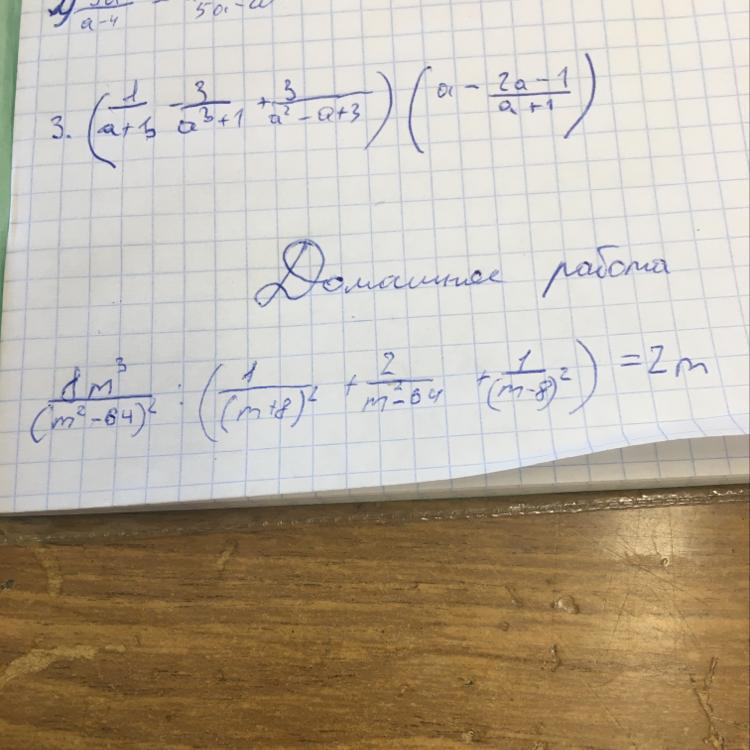 a-4 5a-a
3. (1/(a+1) - 3/(a³+1) + 3/(a²-a+3)) (a - (2a-1)/(a+1))
Домашнее работа
8m³/(m²-64)² : (1/(m+8)² + 2/(m²-64) + 1/(m-8)²) = 2m